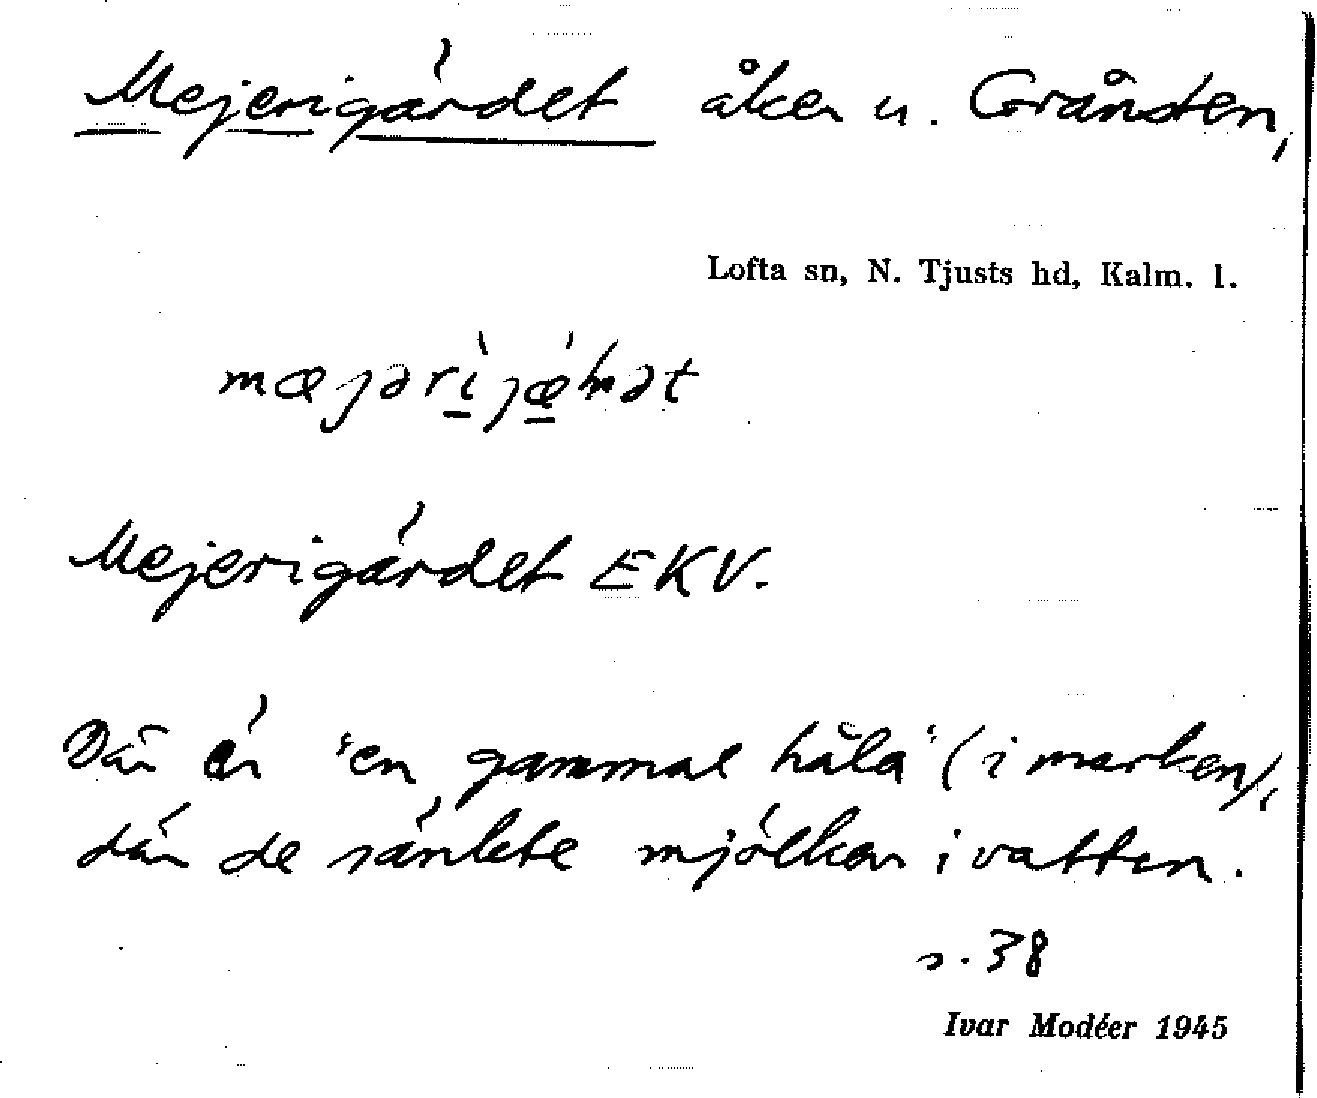 Mejerigärdet åker u. Grånsten,
Lofta sn, N. Tjusts hd, Kalm. l.
Mejerigärdet EKV.
Där är 'en gammal håla' (i marken),
där de sänkte mjölken i vatten.
s. 38
Ivar Modéer 1945